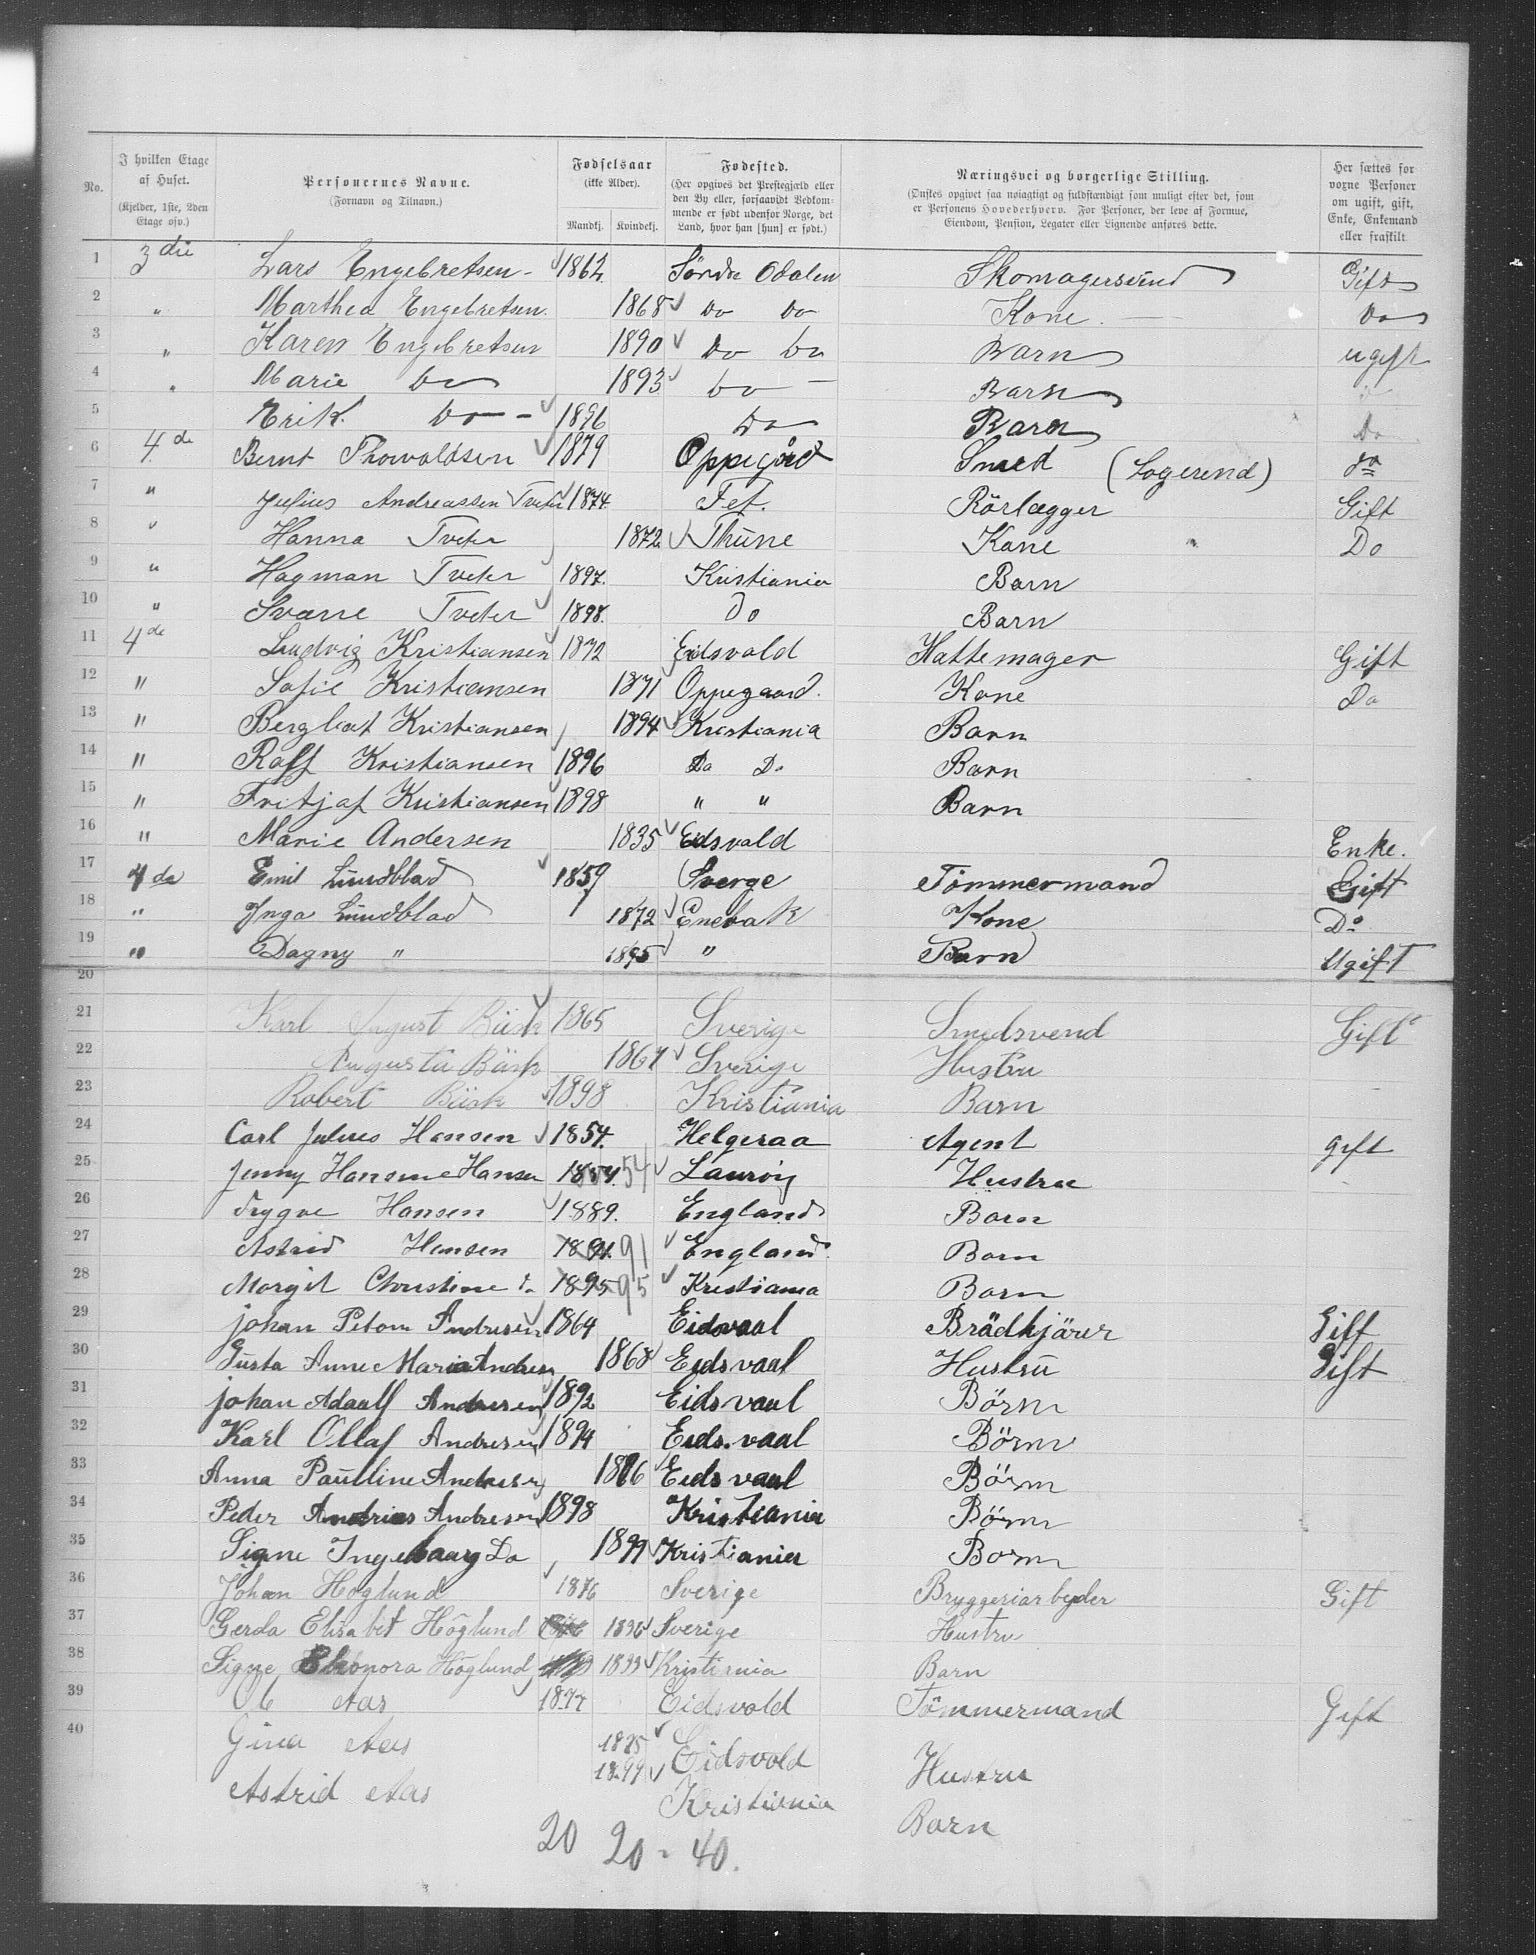 No. | I hvilken Etage af Huset. (Kjelder, 1ste, 2den Etage osv.) | Personernes Navne. (Fornavn og Tilnavn.) | Fødselsaar (ikke Alder). Mandkj. Kvindekj. | Fødested. (Her opgives det Prestegjæld eller den By eller, forsaavidt Vedkommende er født udenfor Norge, det Land, hvor han [hun] er født.) | Næringsvei og borgerlige Stilling. (Ønskes opgivet saa nøiagtigt og fuldstændigt som muligt efter det, som er Personens Hovederhverv. For Personer, der leve af Formue, Eiendom, Pension, Legater eller Lignende anføres dette. | Her sættes for vogne Personer om ugift, gift, Enke, Enkemand eller fraskilt
1 3die Lars Engebretsen 1862 Søndre Odalen Skomagersvend Gift
2 " Marthea Engebretsen 1868 Do Do Kone Do
3 " Karen Engebretsen 1890 Do Do Barn ugift
4 " Marie Do 1893 Do Barn
5 Erik Do 1896 Do Barn Do
6 4de Bernt Thorvaldsen 1879 Oppegård Smed (Logerend) Do
7 " Julius Andreassen Tveter 1874 Fet. Rörlægger Gift
8 " Hanna Tveter 1872 Thune Kone Do
9 " Hagman Tveter 1897. Kristiania Barn
10 " Svarre Tveter 1898. Do Barn
11 4de Ludvig Kristiansen 1872 Eidsvold Hattemager Gift
12 " Sofie Kristiansen 1871 Oppegaard. Kone Do
13 " Bergliot Kristiansen 1894 Kristiania Barn
14 " Rolf Kristiansen 1896 Do Do Barn
15 " Fritjof Kristiansen 1898 " " Barn
16 " Marie Andersen 1835 Eidsvold Enke.
17 4de Emil Lundblad 1859 Sverge Tömmermand Gift
18 " Inga Lundblad 1872 Enebak Kone Do
19 " Dagny " 1895 " Barn Ugift
20
21 Karl August Bäck 1865 Sverige Smedsvend Gift
22 Augusta Bäck 1867 Sverige Hustru
23 Robert Bäck 1898 Kristiania Barn
24 Carl Julius Hansen 1854. Helgeraa Agent gift
25 Jenny Hansine Hansen 1854. 54 Laurvig Hustru
26 Trygve Hansen 1889. England Barn
27 Astrid Hansen 1891. 91 England. Barn
28 Margit Christine Do 1895 95 Kristiania Barn
29 Johan Petom Andresen 1864 Eidsvaal Brödkjører Gift
30 Gusta Anne Maria Andresen 1868 Eidsvaal Hustru Gift
31 Johan Adaalf Andresen 1892 Eidsvaal Börn
32 Karl Ollaf Andresen 1894 Eidsvaal Börn
33 Anna Paulline Andresen 1896 Eidsvaal Börn
34 Peder Andrias Andresen 1898 Kristiania Börn
35 Signe Ingebaarg Do 1899 Kristiania Born
36 Johan Höglund 1876 Sverige Bryggeriarbeider Gift
37 Gerda Elisabet Höglund 1876 Sverige Hustru
38 Signe Eleonora Höglund 1899 Kristiania Barn
39 Ole Aas 1877 Eidsvold Tömmermand Gift
40 Gina Aas 1875 Eidsvold Hustru
Astrid Aas 1899 Kristiania Barn
20 20 - 40.